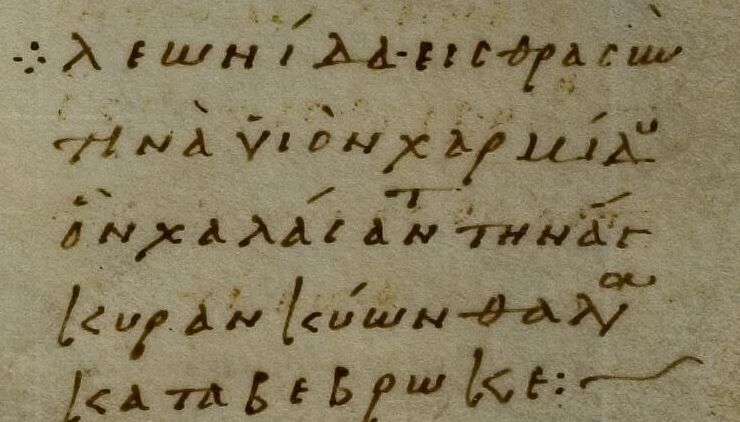 ⁘ λεωνίδα· εις θρασὼ
τηνὰ ϋιὸν χαρμίδου
ὃν χαλάσαντ τὴν ἄγ
κυραν κύων θαλασ
καταβεβρωκε:~